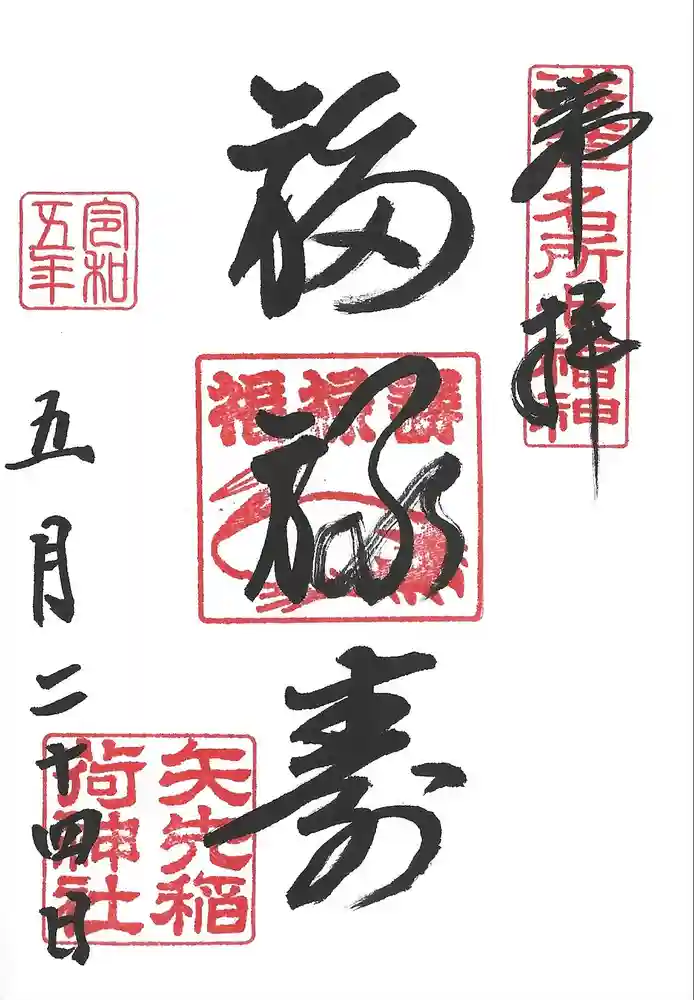 奉拝
浅草名所七福神
福禄寿
福禄寿
令和
五年
五月二十四日
矢先稲
荷神社